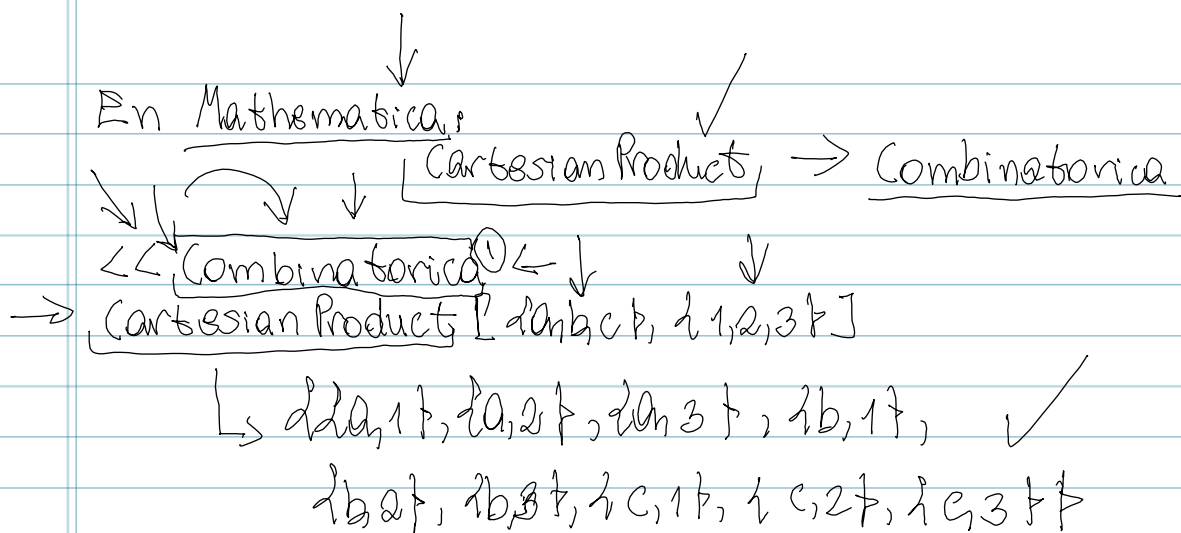 En Mathematica,
CartesianProduct → Combinatorica
<<Combinatorica` ←
→ CartesianProduct[{a,b,c}, {1,2,3}]
↳ {{a,1},{a,2},{a,3},{b,1},
{b,2},{b,3},{c,1},{c,2},{c,3}}